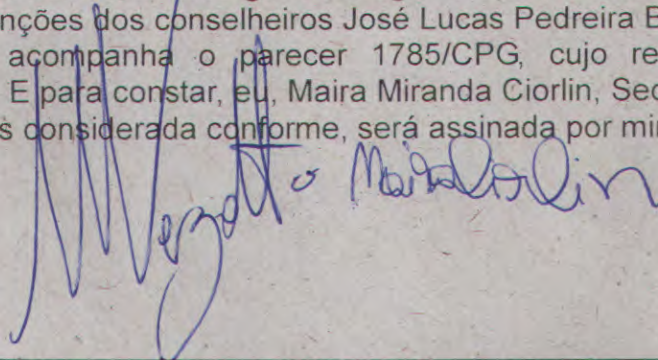 nções dos conselheiros José Lucas Pedreira B
acompanha o parecer 1785/CPG, cujo re
E para constar, eu, Maira Miranda Ciorlin, Sec
s considerada conforme, será assinada por mir
Maira Ciorlin